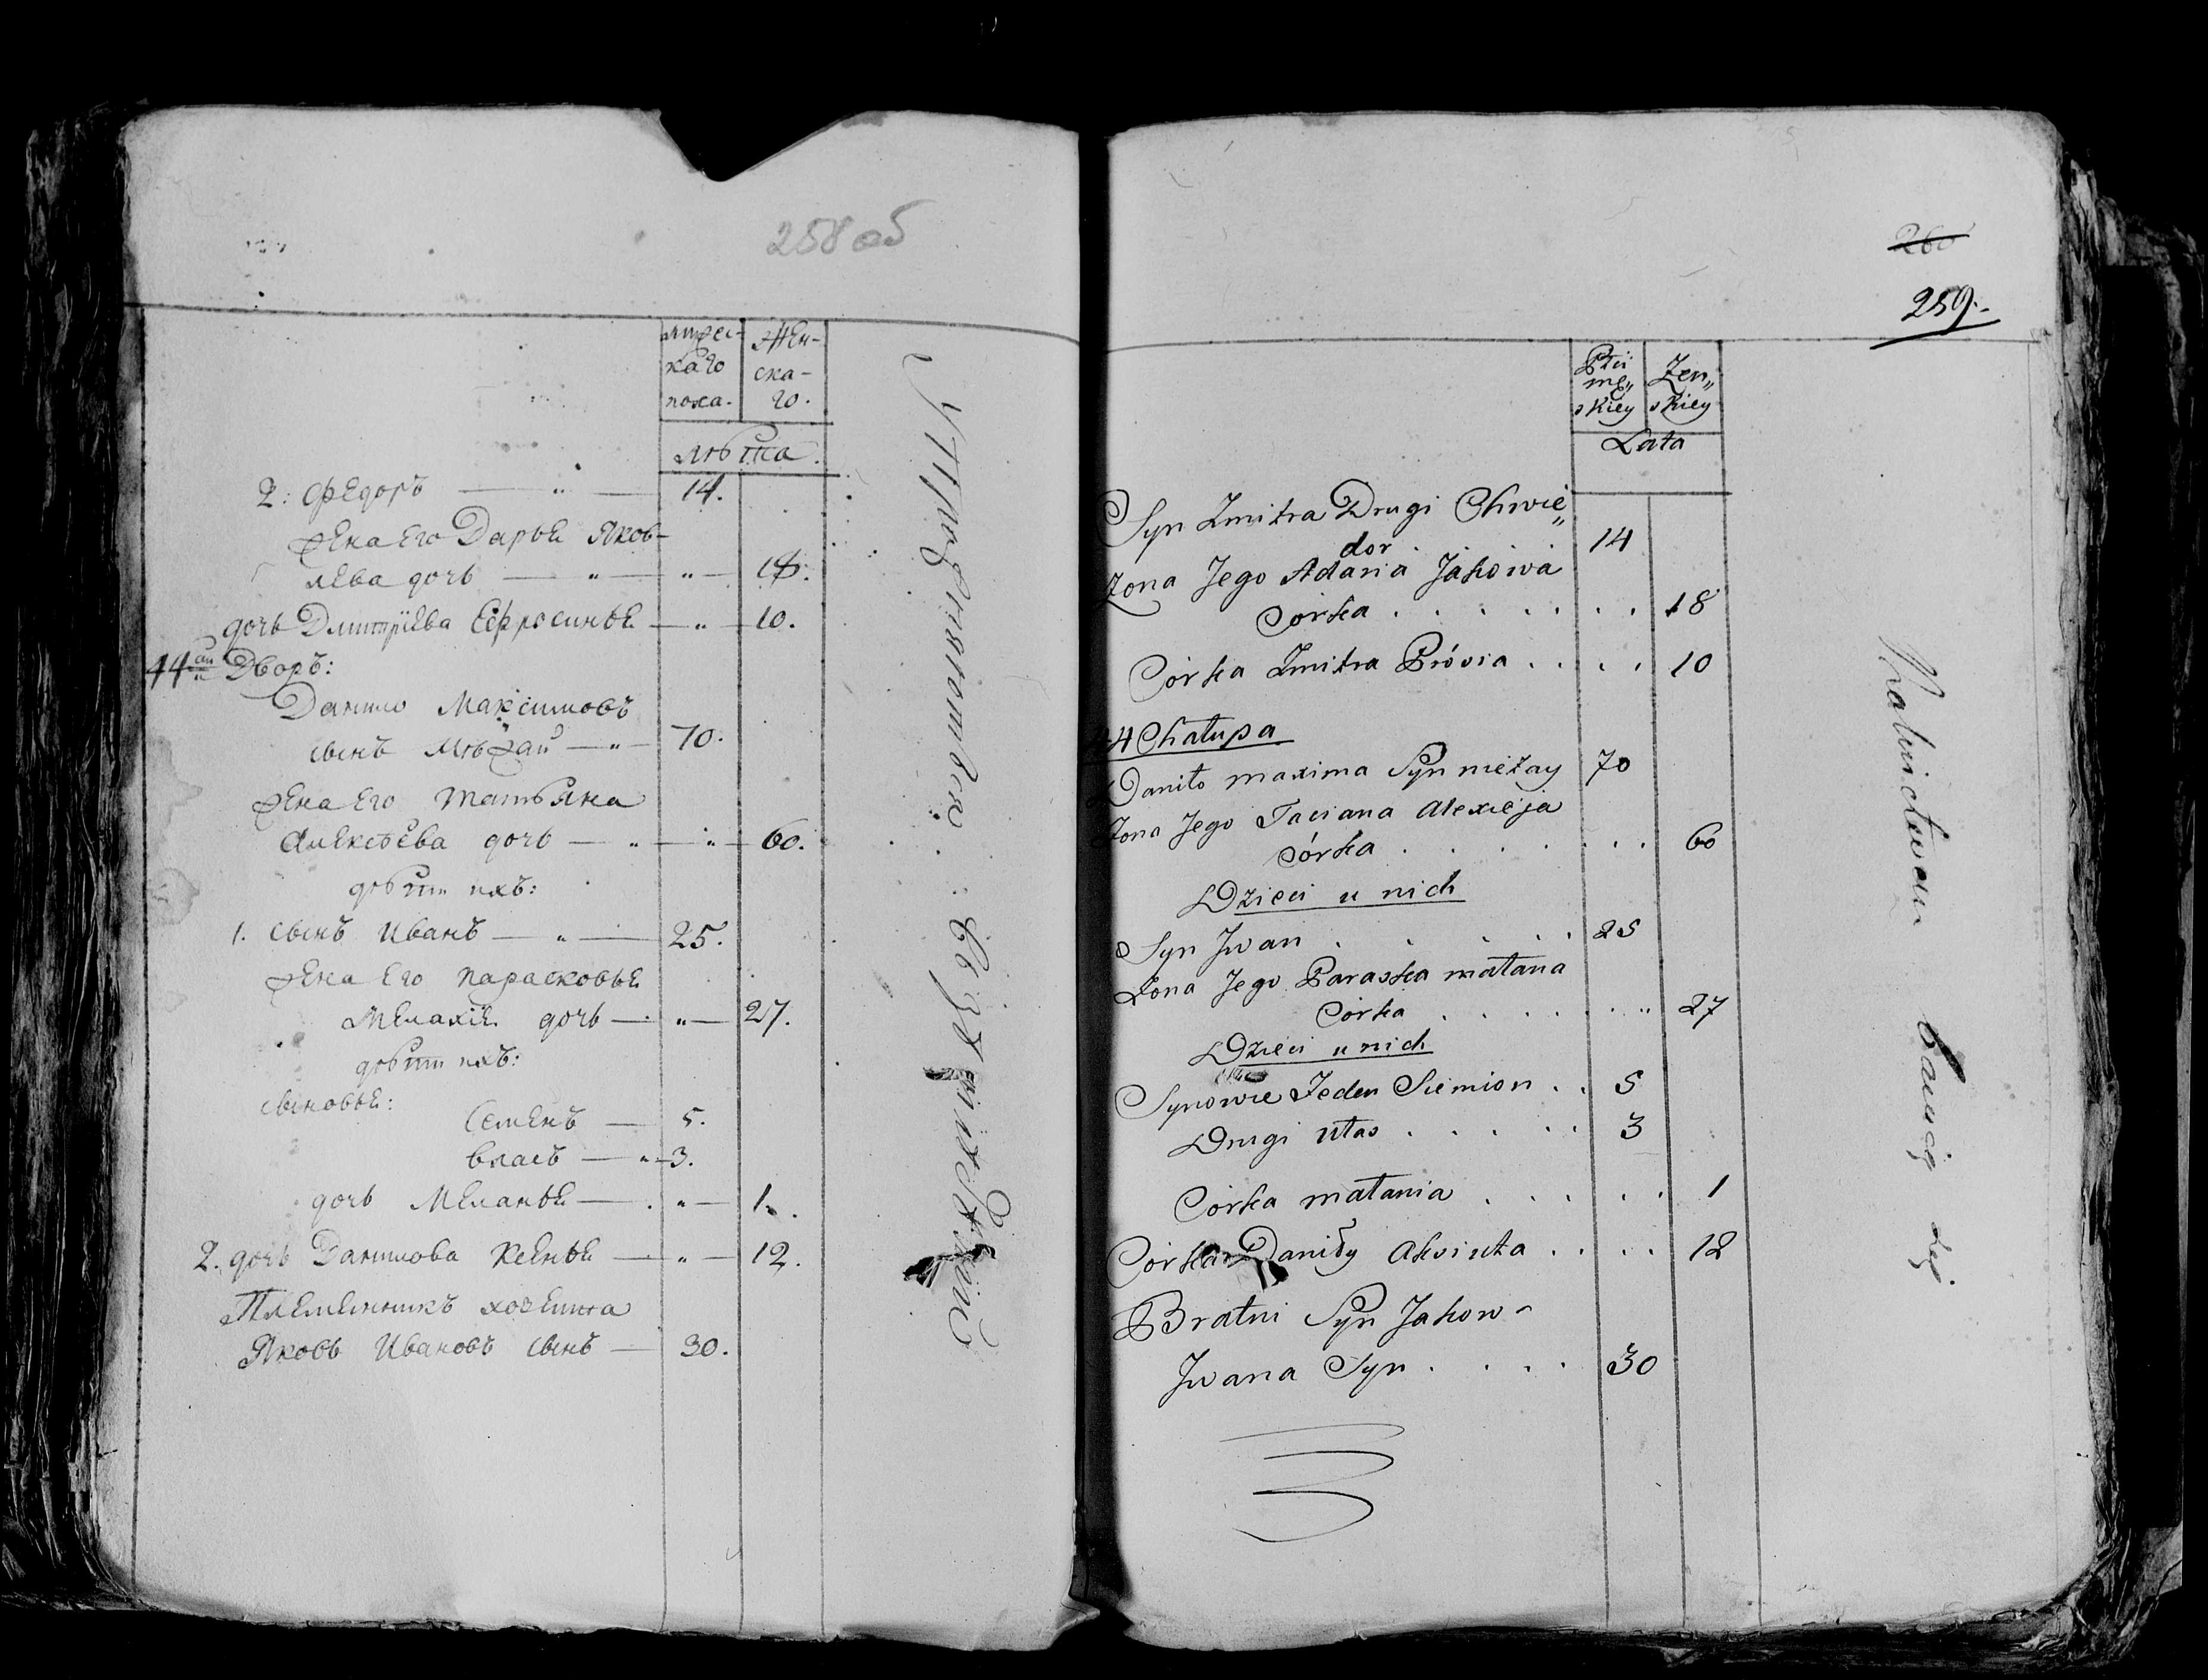 258 об
мужес-
каго
пола.
Жен-
ска-
го.
лѣта.
2: Федоръ — " — 14.
жена Его Дарьѣ Яков-
лева дочь — " — " — 18.
дочь Дмитріева Ефросиньѣ — " — 10.
44ый Дворъ:
Данило Максимовъ
сынъ Мѣжай — " — 70.
жена Его Татьяна
Алексѣева дочь — " — " — 60.
дѣти ихъ:
1. сынъ Иванъ — " — 25.
жена Его Парасковьѣ
Мелахіѣ дочь — " — 27.
дѣти ихъ:
сыновьѣ:
Семенъ — 5.
Власъ — " — 3.
дочь Меланьѣ — . " — 1.
2. дочь Данилова Ксеньѣ — " — 12.
Племенникъ хозеина
Яковъ Ивановъ сынъ — 30.
260
259.
Płci
mę„
skiey
Zen„
skiey
Lata
Syn Zmitra Drugi Chwie„
dor . 14
Zona Jego Adaria Jakowa
Corka . . . . . . . 18
Corka Zmitra Prósia . . . . 10
44 Chałupa
Daniło maxima Syn mieżay 70
Zona Jego Taciana Alexieja
Córka . . . . . . . 60
Dzieci u nich
Syn Jwan . . . . . 25
Zona Jego Paraska małana
Corka . . . . . . " 27
Dzieci u nich
Synowie Jeden Siemion . . 5
Drugi ułas . . . . . 3
Corka małania . . . . . 1
Corka Daniły Aksiuta . . . . 12
Bratni Syn Jakow -
Jwana Syn . . . . 30